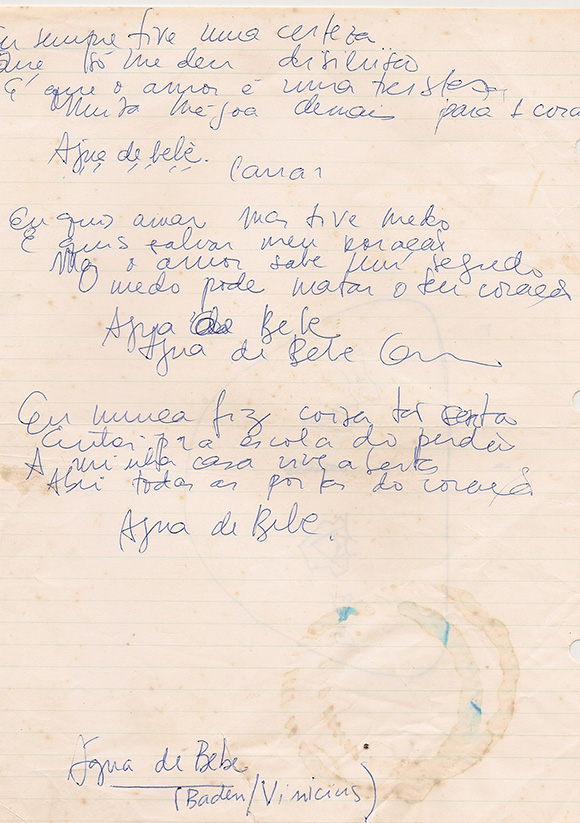 Eu sempre tive uma certeza
Que só me deu disilusão
É que o amor é uma tristeza
Muita mágoa demais para 1 cora
Água de bebê.
Eu quis amar mas tive medo
E quis salvar meu coração
Mas o amor sabe um segredo
O medo pode matar o seu coração
Agua de Bebe
Agua de Bebe
Eu nunca fiz coisa tão certa
Entrei pra escola do perdão
A minha casa vive aberta
Abri todas as portas do coração
Agua de Bebe.
Agua de Bebe
(Baden/Vinicius)